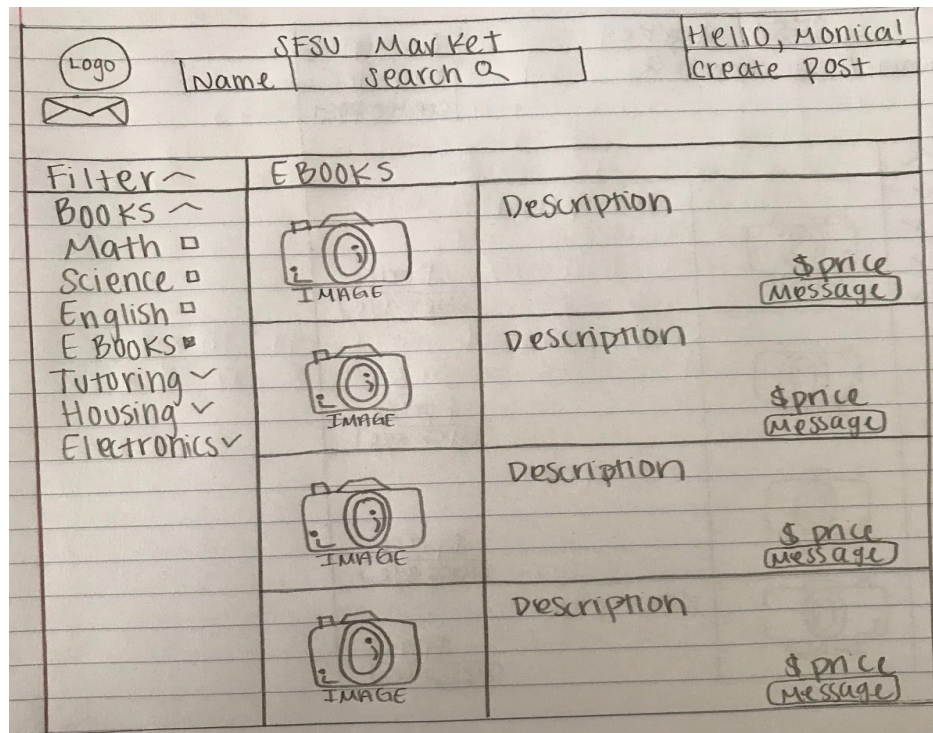 SFSU Market
Hello, Monica!
Logo
Name
search
create post
Filter
EBOOKS
BOOKS
Math
Science
English
E BOOKS
Tutoring
Housing
Electronics
IMAGE
Description
$ price
Message
IMAGE
Description
$ price
Message
IMAGE
Description
$ price
Message
IMAGE
Description
$ price
Message